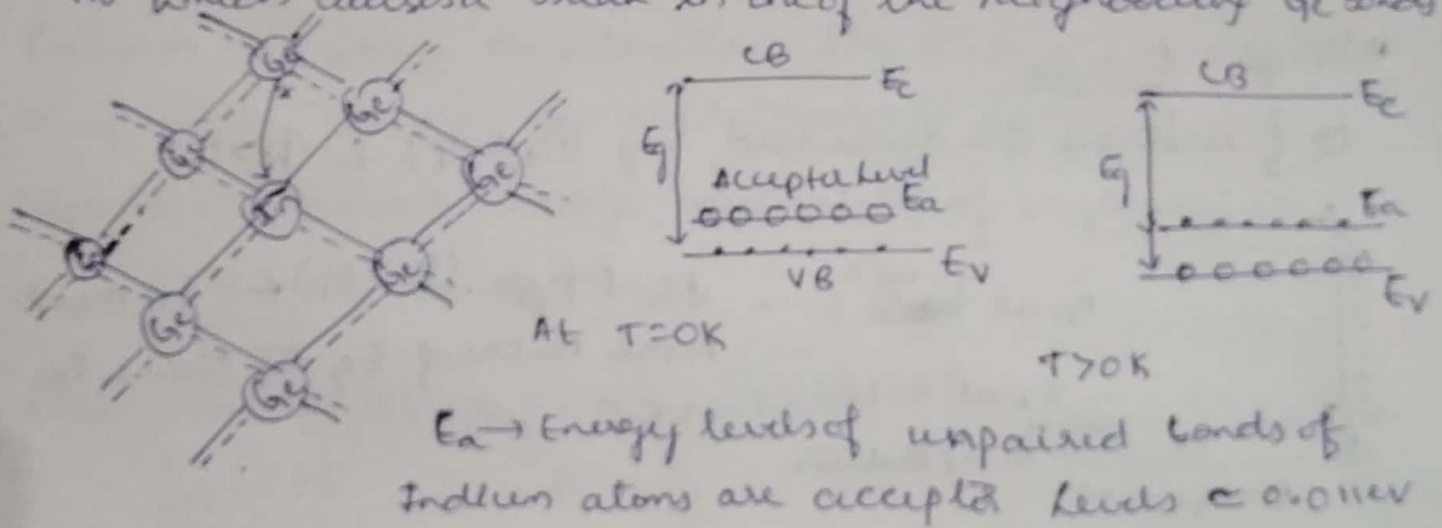 which causes a break in one of the neighbouring Ge bonds
Ge
Ge
Ge
Ge
In
Ge
Ge
Ge
CB
Ec
Eg
Acceptor Level
Ea
VB
Ev
At T=0K
CB
Ec
Eg
Ea
Ev
T>0K
Ea → Energy levels of unpaired bonds of
Indium atoms are acceptor levels ≃ 0.011eV